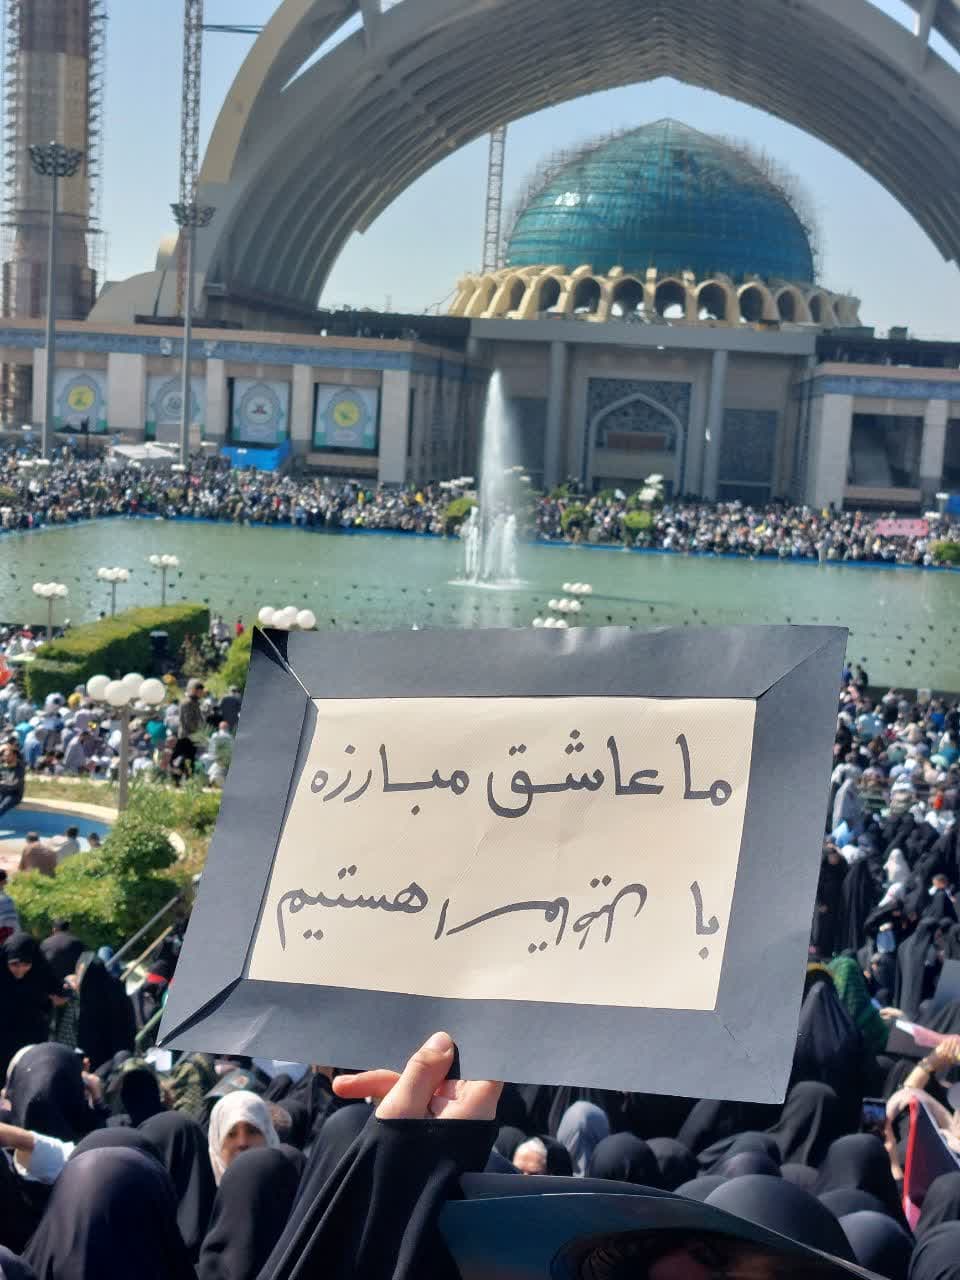 ما عاشق مبارزه
با هستیم